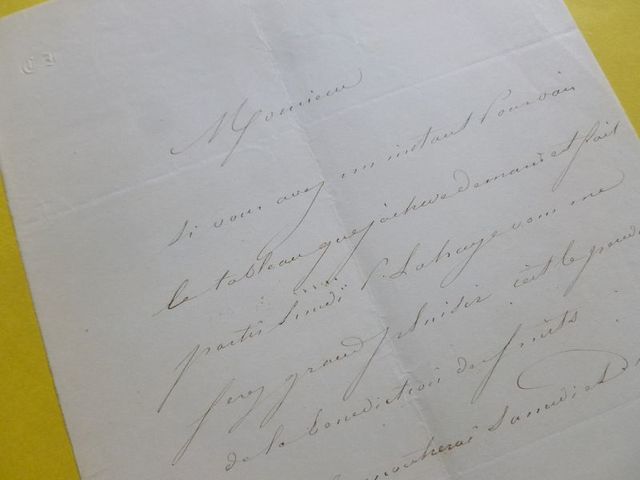 Monsieur
si vous avez un instant pour voir
le tableau que j'acheve demain et fait
partir lundi P. Lahaye vous me
ferez grand plaisir c'est le
de la benediction des fruits
samedi et